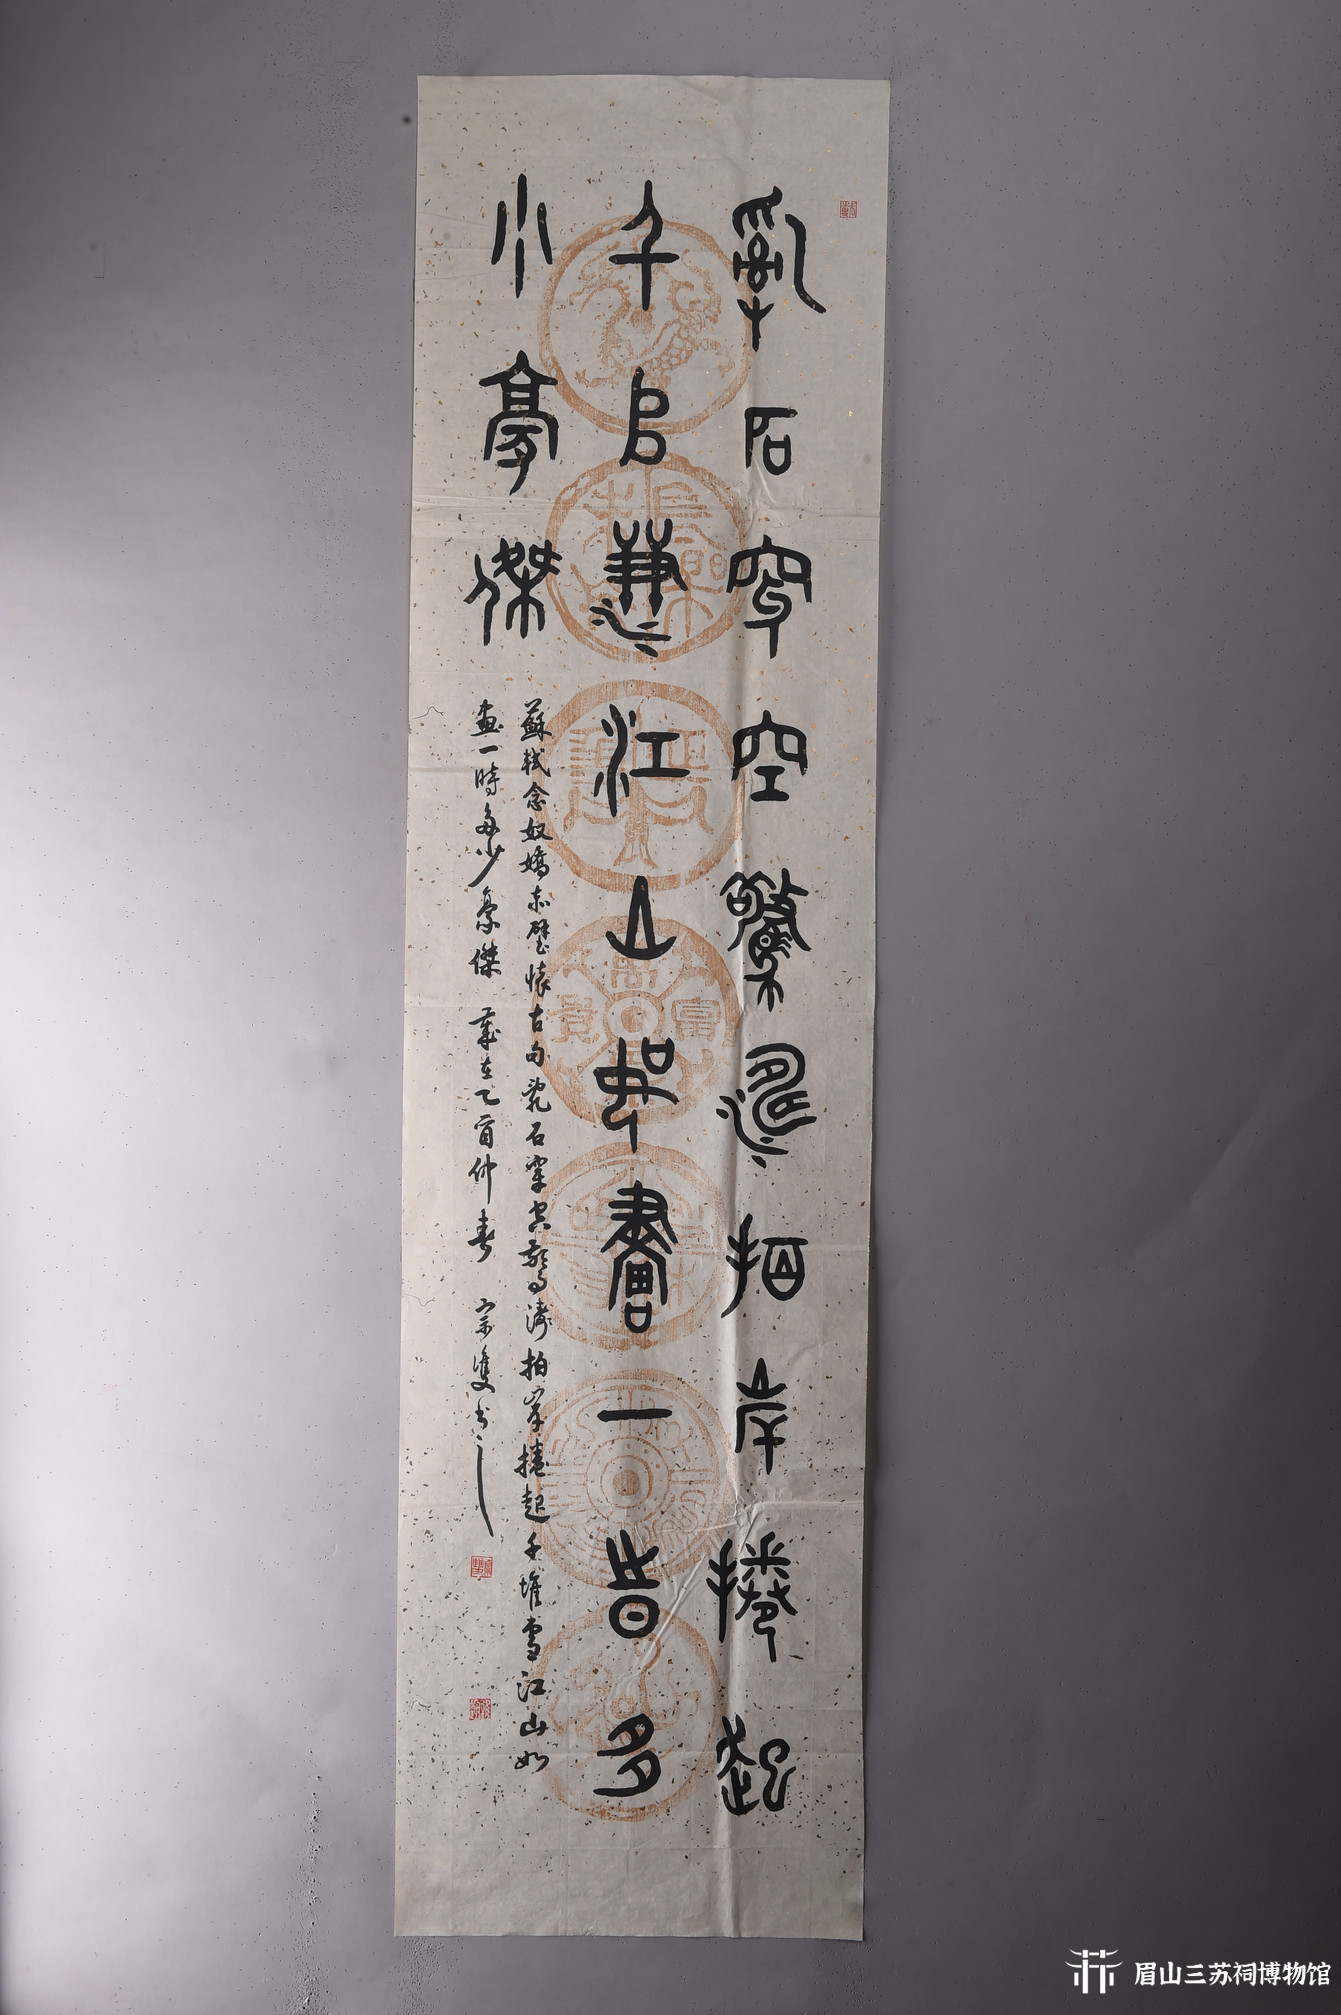 亂石穿空驚濤拍岸捲起
千堆雪江山如畫一時多
少豪傑
蘇軾念奴嬌赤壁懷古句亂石穿空驚濤拍岸捲起千堆雪江山如
畫一時多少豪傑 歲在乙酉仲春 宗雙书之
眉山三苏祠博物馆